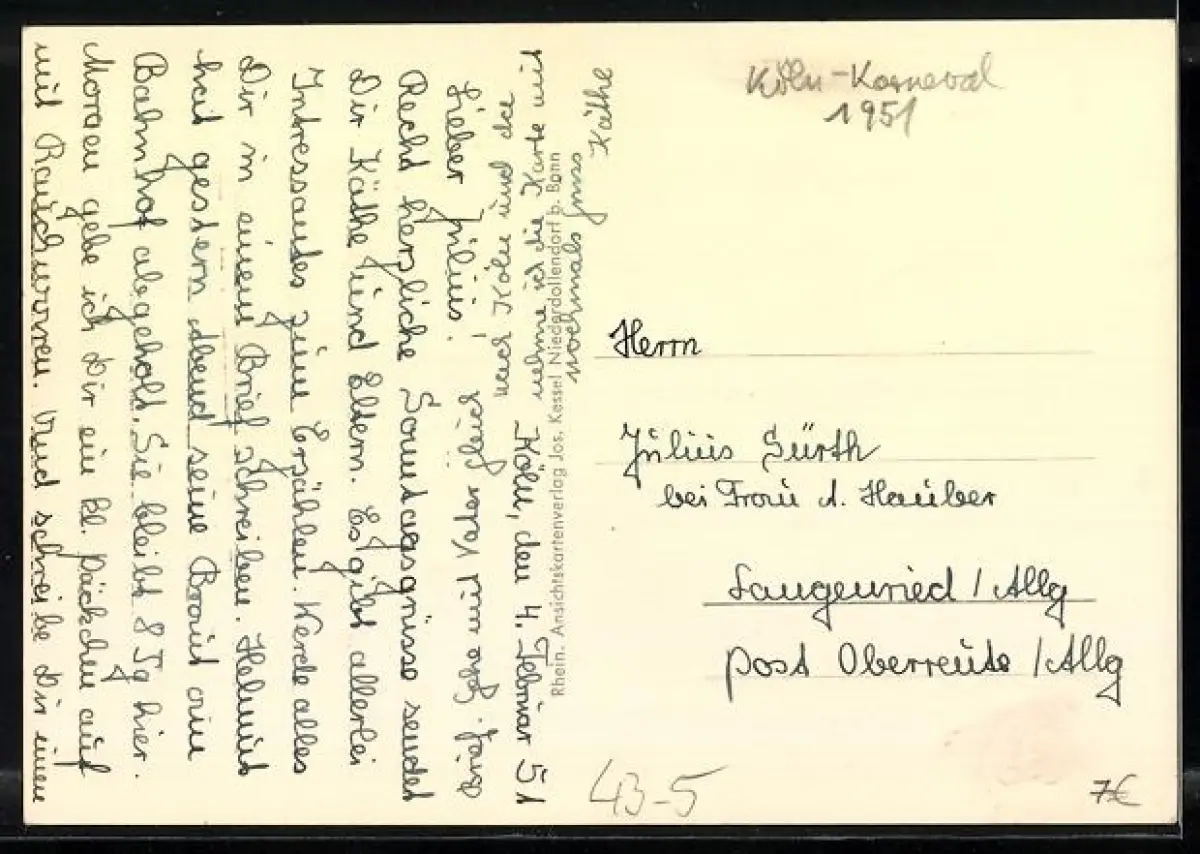 Köln-Karneval
1951
Köln, den 4. Februar 51
Lieber Julius!
Recht herzliche Sonntagsgrüsse sendet
Dir Käthe und Eltern. Es gibt allerlei
Intressantes zum Erzählen. Werde alles
Dir in einem Brief schreiben. Helmut
hat gestern Abend seine Braut am
Bahnhof abgeholt. Sie bleibt 8 Tg hier.
Morgen gebe ich Dir ein Kl. Päckchen auf
mit Rauchwaren. Und schreibe Dir einen
Gehe mit Vater gleich
nach Köln und da
nehme ich die Karte mit
nochmals Gruss
Käthe
Rhein. Ansichtskartenverlag Jos. Kessel Niederdollendorf b. Bonn
Herrn
Julius Gürth
bei Frau A. Hauber
Langenried / Allg
Post Oberreute / Allg
43-5
7€